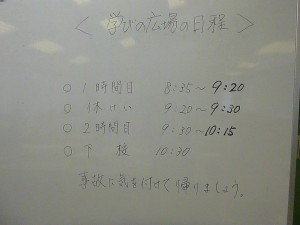 ＜学びの広場の日程＞
○ 1時間目 8:35～9:20
○ 休けい 9:20～9:30
○ 2時間目 9:30～10:15
○ 下校 10:30
事故に気を付けて帰りましょう。